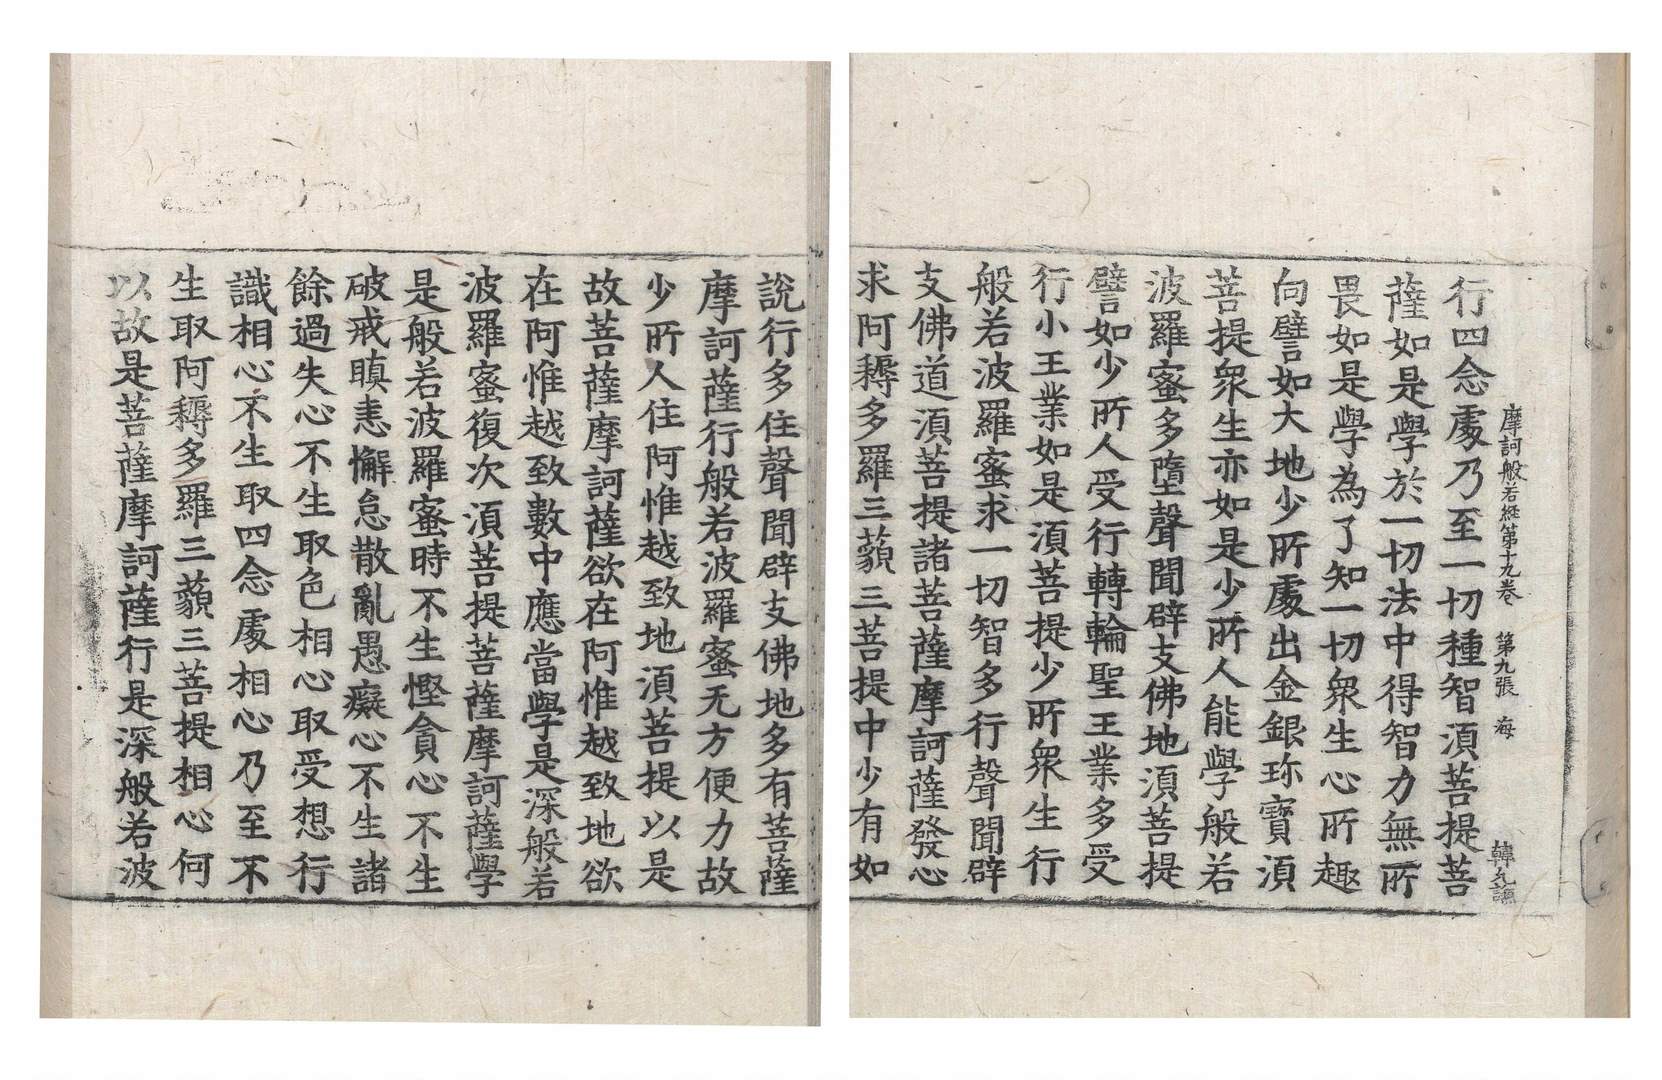 摩訶般若經第十九卷　第九張　海
行四念處乃至一切種智湏菩提菩
薩如是學於一切法中得智力無所
畏如是學為了知一切衆生心所趣
向譬如大地少所處出金銀珎寶湏
菩提衆生亦如是少所人能學般若
波羅蜜多墮聲聞辟支佛地湏菩提
譬如少所人受行轉輪聖王業多受
行小王業如是湏菩提少所衆生行
般若波羅蜜求一切智多行聲聞辟
支佛道湏菩提諸菩薩摩訶薩發心
求阿耨多羅三藐三菩提中少有如
說行多住聲聞辟支佛地多有菩薩
摩訶薩行般若波羅蜜无方便力故
少所人住阿惟越致地湏菩提以是
故菩薩摩訶薩欲在阿惟越致地欲
在阿惟越致數中應當學是深般若
波羅蜜復次湏菩提菩薩摩訶薩學
是般若波羅蜜時不生慳貪心不生
破戒瞋恚懈怠散亂愚癡心不生諸
餘過失心不生取色相心取受想行
識相心不生取四念處相心乃至不
生取阿耨多羅三藐三菩提相心何
以故是菩薩摩訶薩行是深般若波